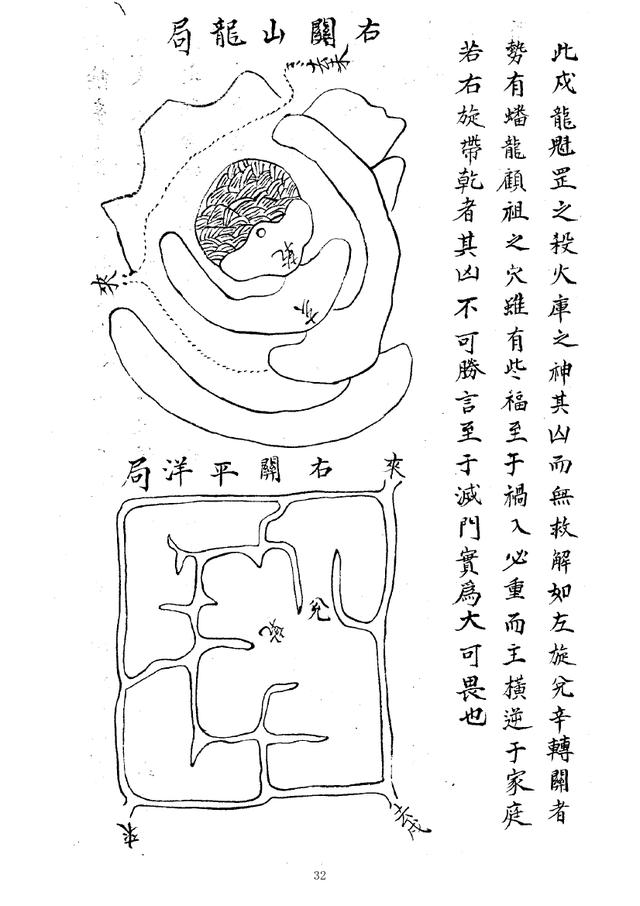 此戍龍魁罡之殺火庫之神其凶而無救解如左旋兌辛轉關者
勢有蟠龍顧祖之穴雖有些福至于禍入必重而主橫逆于家庭
若右旋帶乾者其凶不可勝言至于滅門實爲大可畏也
右關山龍局
來
右關平洋局
來
兌
來
去戍
32